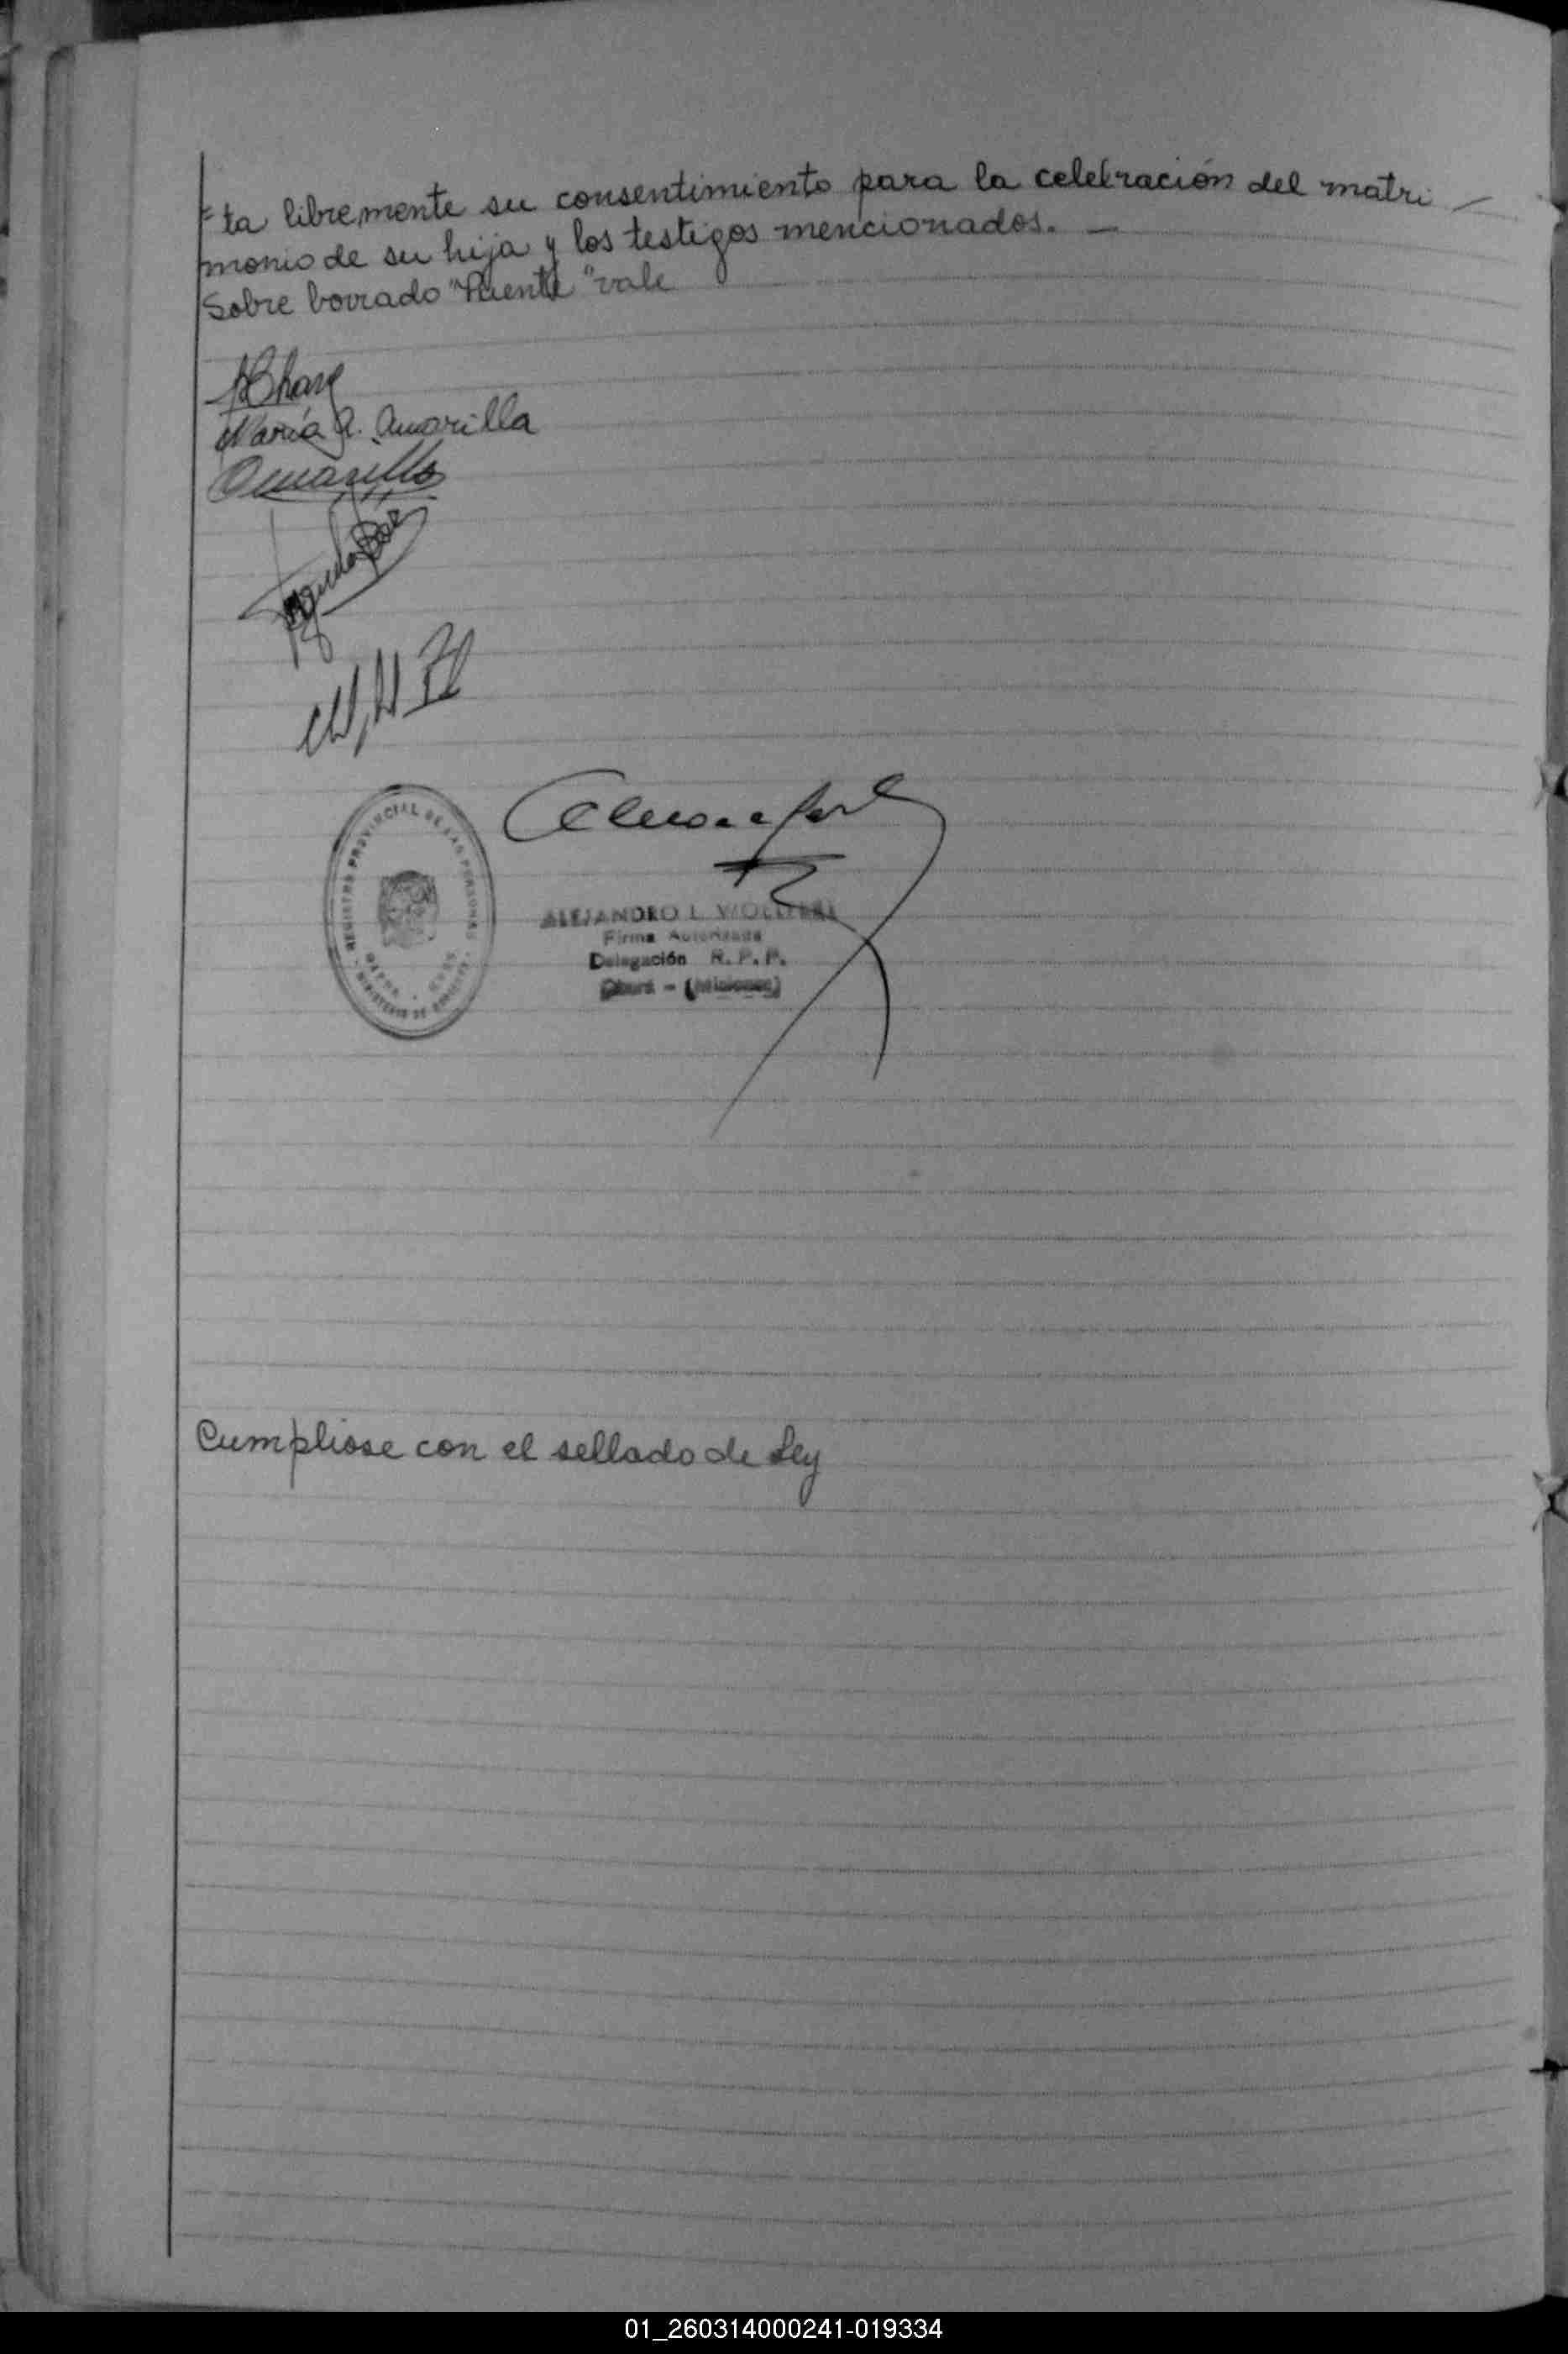 ta libremente su consentimiento para la celebración del matri
monio de su hija y los testigos mencionados. —
Sobre borrado "Puente" vale
María R. Amarilla
Amarilla
REGISTRO PROVINCIAL DE LAS PERSONAS
MINISTERIO DE
ALEJANDRO L.
Firma Autorizada
Delegación R. P. P.
Oberá - (Misiones)
Cumpliose con el sellado de Ley
01_260314000241-019334